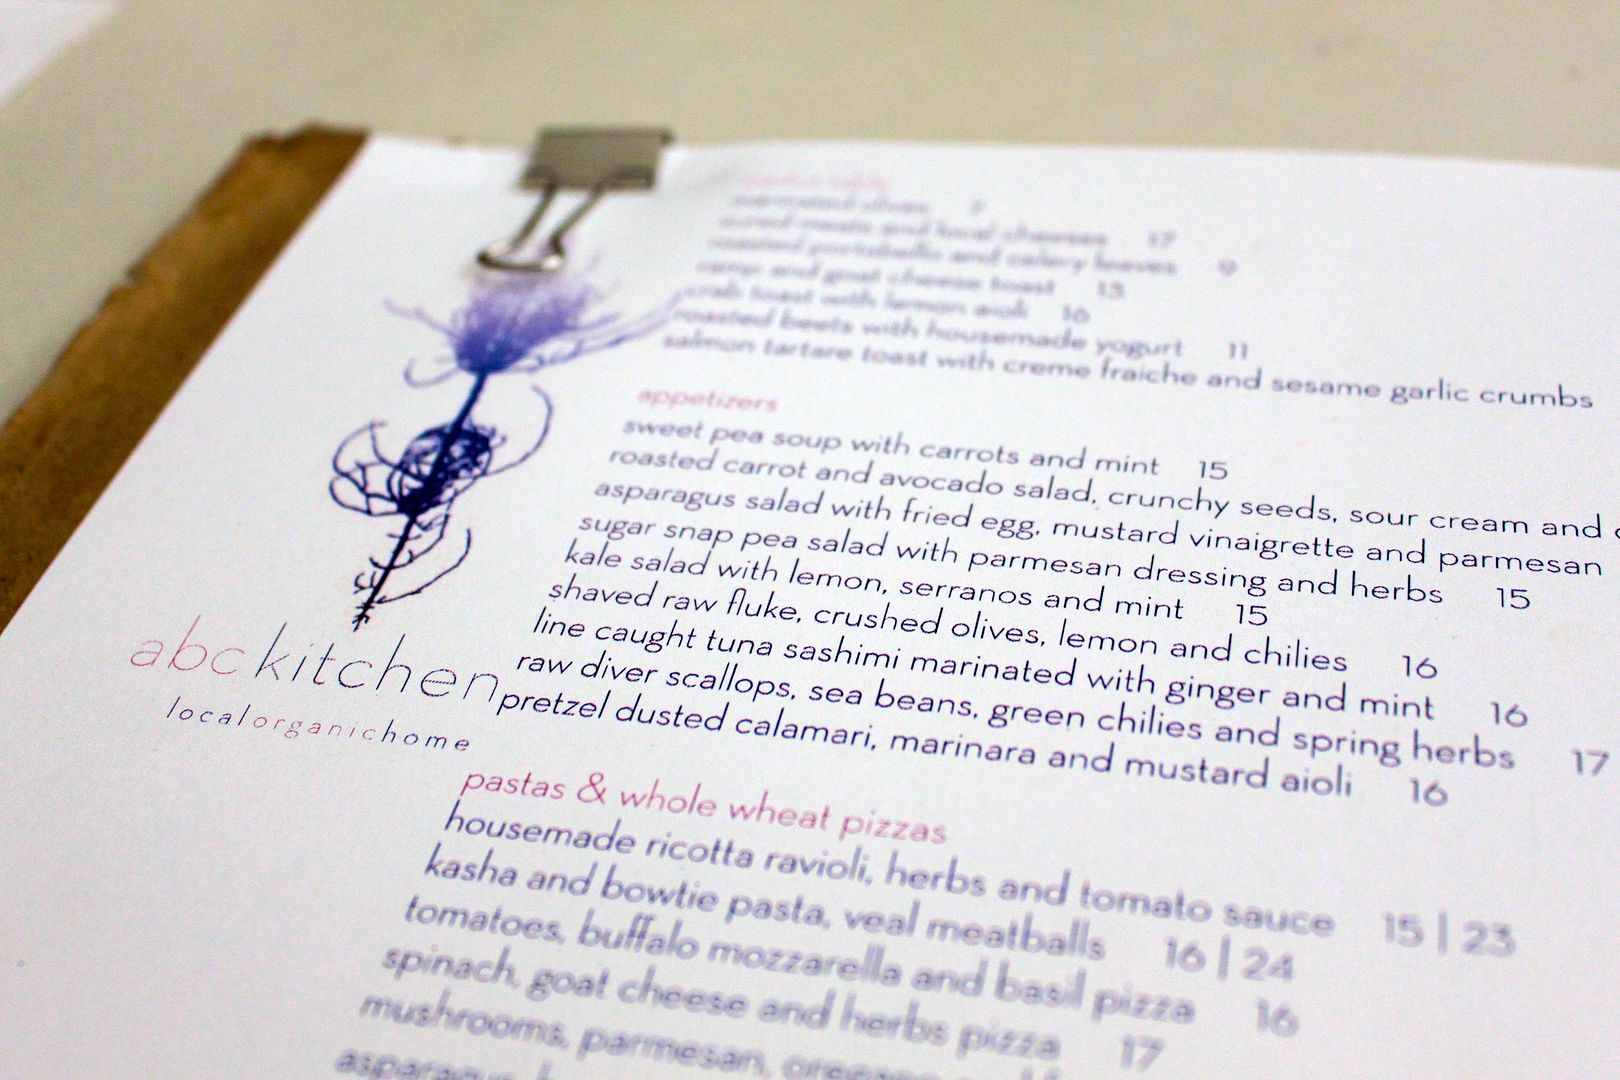 marinated olives 7
cured meats and local cheeses 17
roasted portobello and celery leaves 9
ramp and goat cheese toast 13
crab toast with lemon aioli 16
roasted beets with housemade yogurt 11
salmon tartare toast with creme fraiche and sesame garlic crumbs
appetizers
sweet pea soup with carrots and mint 15
roasted carrot and avocado salad, crunchy seeds, sour cream and
asparagus salad with fried egg, mustard vinaigrette and parmesan
sugar snap pea salad with parmesan dressing and herbs 15
kale salad with lemon, serranos and mint 15
shaved raw fluke, crushed olives, lemon and chilies 16
line caught tuna sashimi marinated with ginger and mint 16
raw diver scallops, sea beans, green chilies and spring herbs 17
pretzel dusted calamari, marinara and mustard aioli 16
abckitchen
localorganichome
pastas & whole wheat pizzas
housemade ricotta ravioli, herbs and tomato sauce 15 | 23
kasha and bowtie pasta, veal meatballs 16 | 24
tomatoes, buffalo mozzarella and basil pizza 16
spinach, goat cheese and herbs pizza 17
mushrooms, parmesan, oregano and
asparagus,